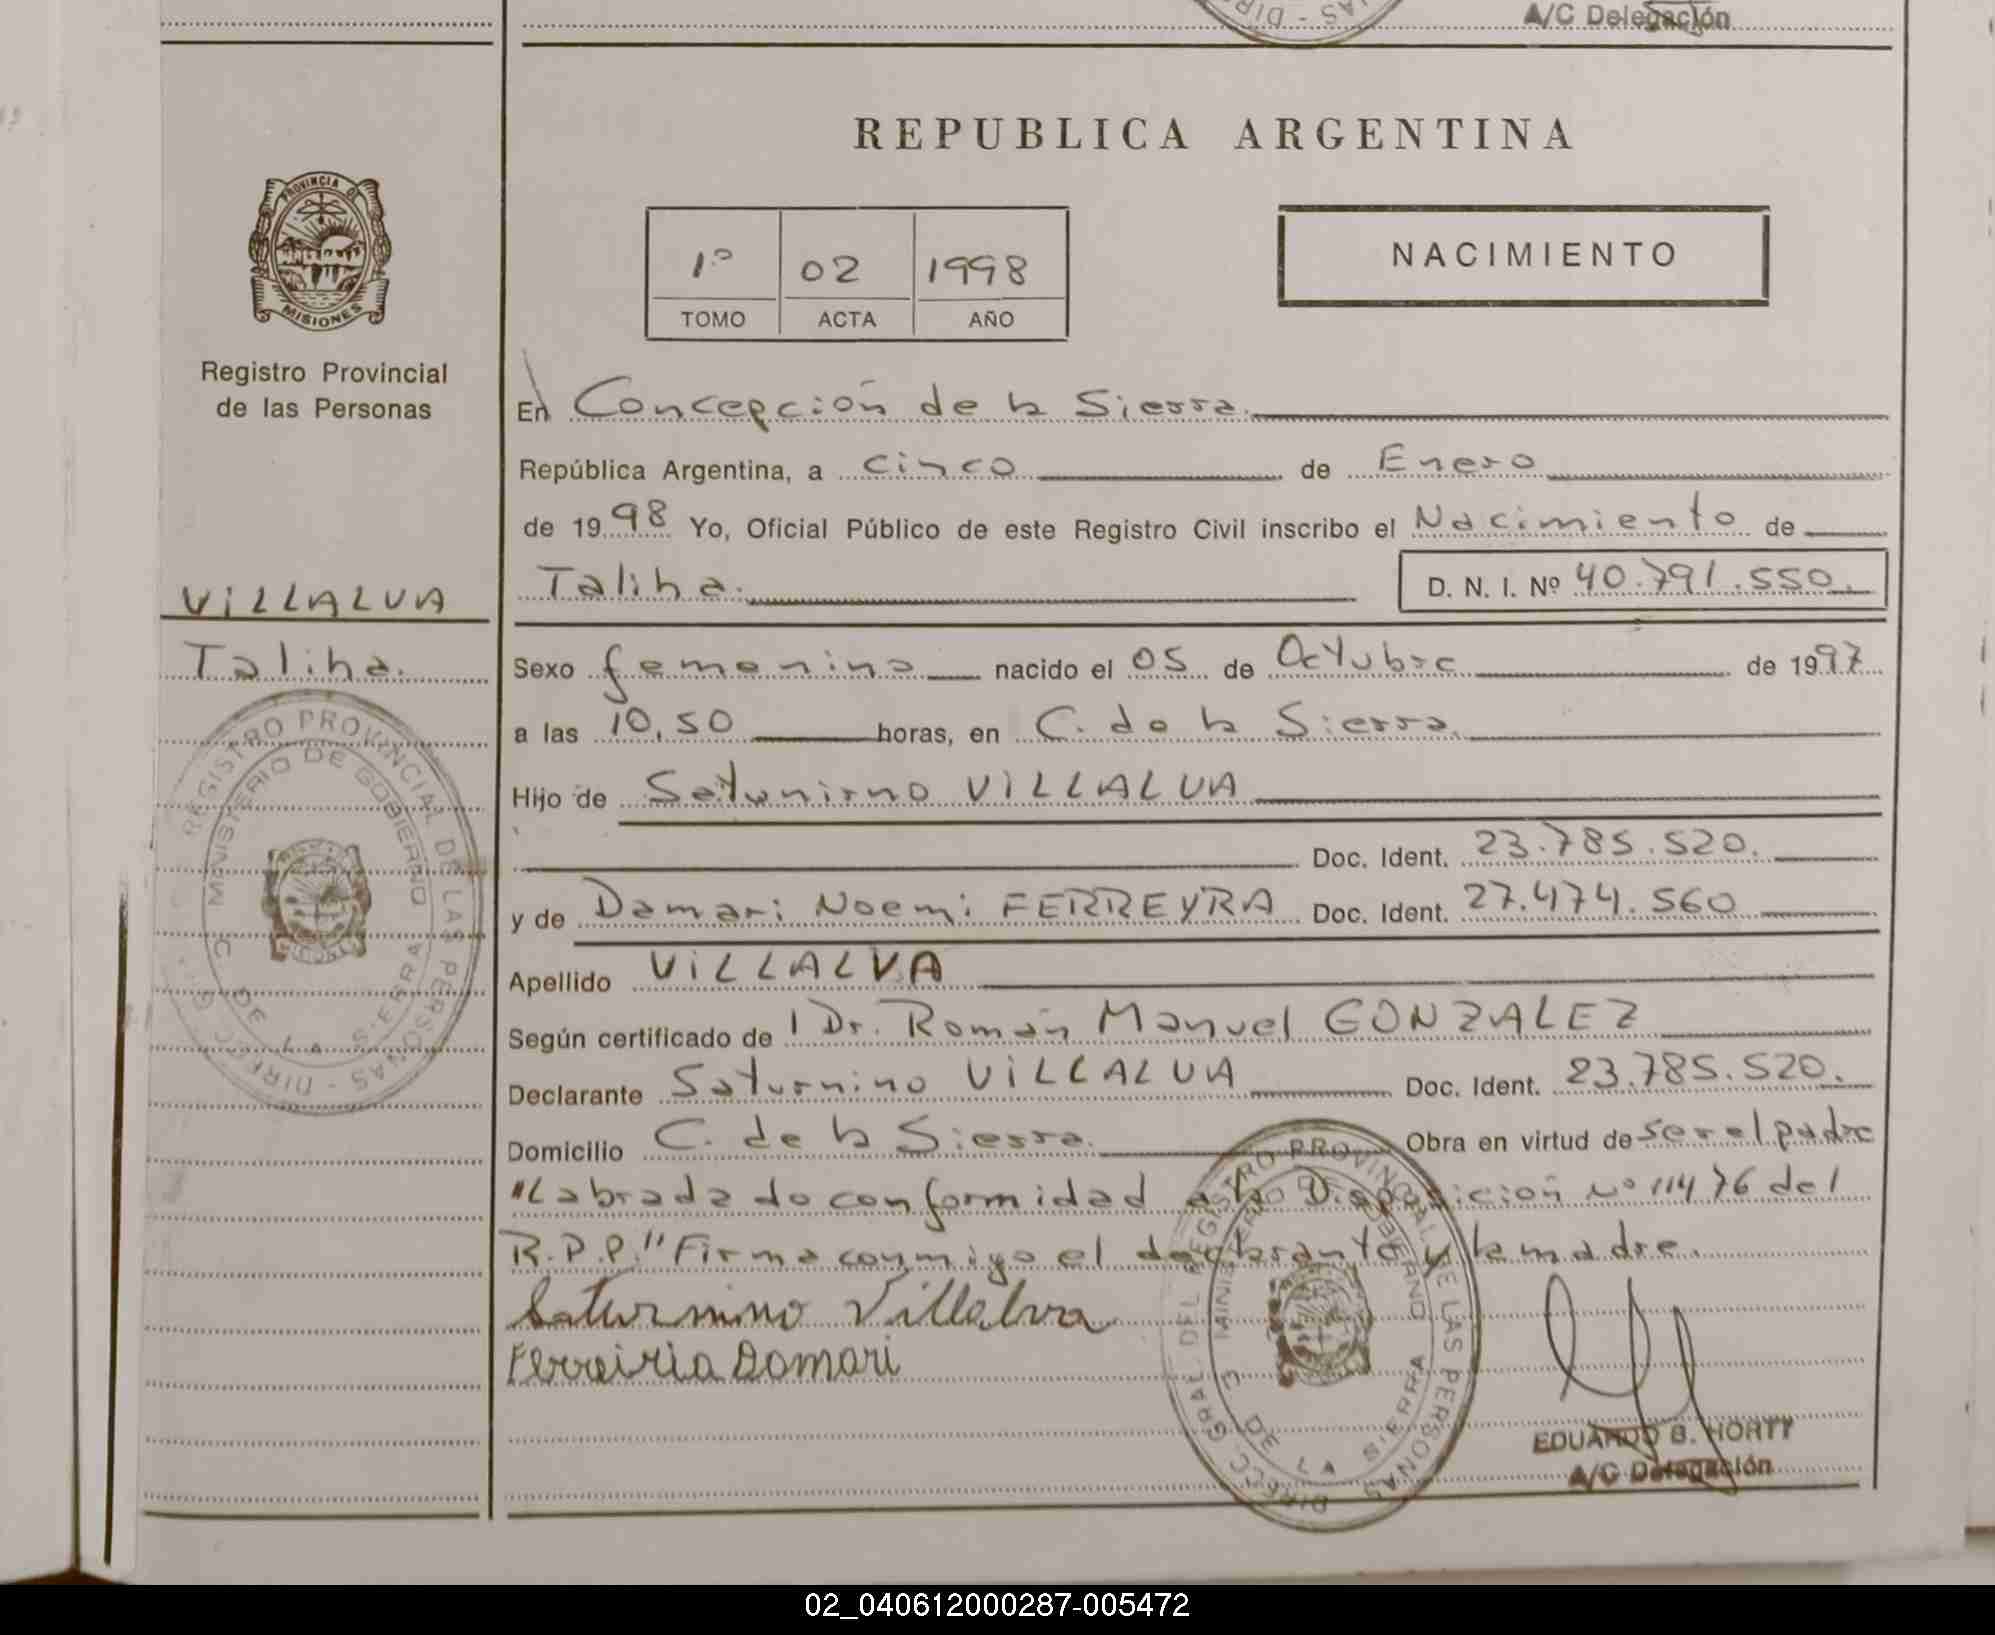 A/C Delegación
REPUBLICA ARGENTINA
PROVINCIA DE
MISIONES
Registro Provincial
de las Personas
1º 02 1998
TOMO ACTA AÑO
NACIMIENTO
En Concepción de la Sierra.
República Argentina, a cinco de Enero
de 1998 Yo, Oficial Público de este Registro Civil inscribo el Nacimiento de
Taliha. D. N. I. Nº 40.791.550.
VILLALVA
Taliha.
Sexo femenino nacido el 05 de Octubre de 1997
a las 10,50 horas, en C. de la Sierra.
Hijo de Satunirno VILLALVA
Doc. Ident. 23.785.520.
y de Damari Noemi FERREYRA Doc. Ident. 27.474.560
Apellido VILLALVA
Según certificado de Dr. Román Manuel GONZALEZ
Declarante Saturnino VILLALVA Doc. Ident. 23.785.520.
Domicilio C. de la Sierra. Obra en virtud de ser el padre
"Labrada de conformidad a la Disposición Nº 11476 del
R.P.P." Firma conmigo el declarante y la madre.
Saturnino Villalva
Ferreiria Damari
REGISTRO PROVINCIAL DE LAS PERSONAS - DIRECC. G
MINISTERIO DE GOBIERNO
C. DE LA SIERRA
DIRECC. GRAL DEL REGISTRO PROVINCIAL DE LAS PERSONAS
MINISTERIO DE GOBIERNO
C. DE LA SIERRA
EDUARDO B. HORTT
A/C Delegación
02_040612000287-005472